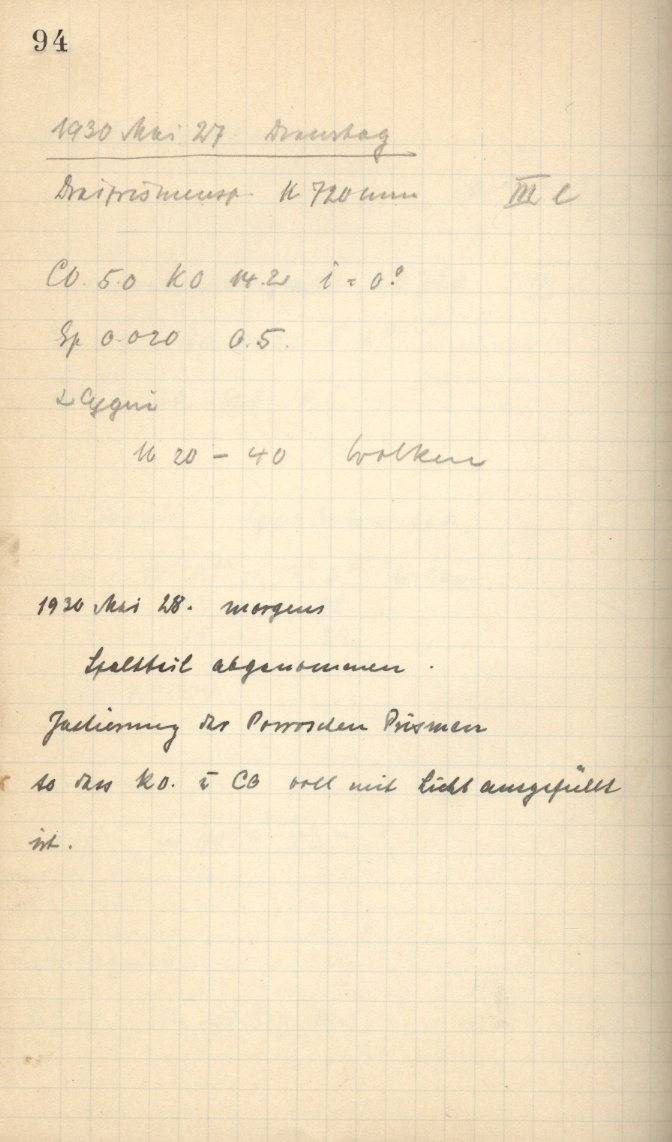 94
1930 Mai 27 Dienstag
Dreiprismensp. K 720 mm III c
CO. 5.0 KO 14.2 i = 0.°
Sp 0.020 0.5.
α Cygni
16 20 – 40 Wolken
1930 Mai 28. morgens
Spaltteil abgenommen.
Justierung der Porroschen Prismen
so dass KO. u CO voll mit Licht ausgefüllt
ist.